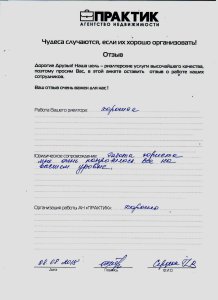 ПРАКТИК
АГЕНТСТВО НЕДВИЖИМОСТИ
Чудеса случаются, если их хорошо организовать!
Отзыв
Дорогие Друзья! Наша цель – риэлтерские услуги высочайшего качества,
поэтому просим Вас, в этой анкете оставить отзыв о работе наших
сотрудников.
Ваш отзыв очень важен для нас!
Работа Вашего риелтора: хорошая
Юридическое сопровождение: Работа юриста
мне очень понравилась все на
высшем уровне.
Организация работы АН «ПРАКТИК»: хорошо
Дата
Подпись
Ф.И.О.